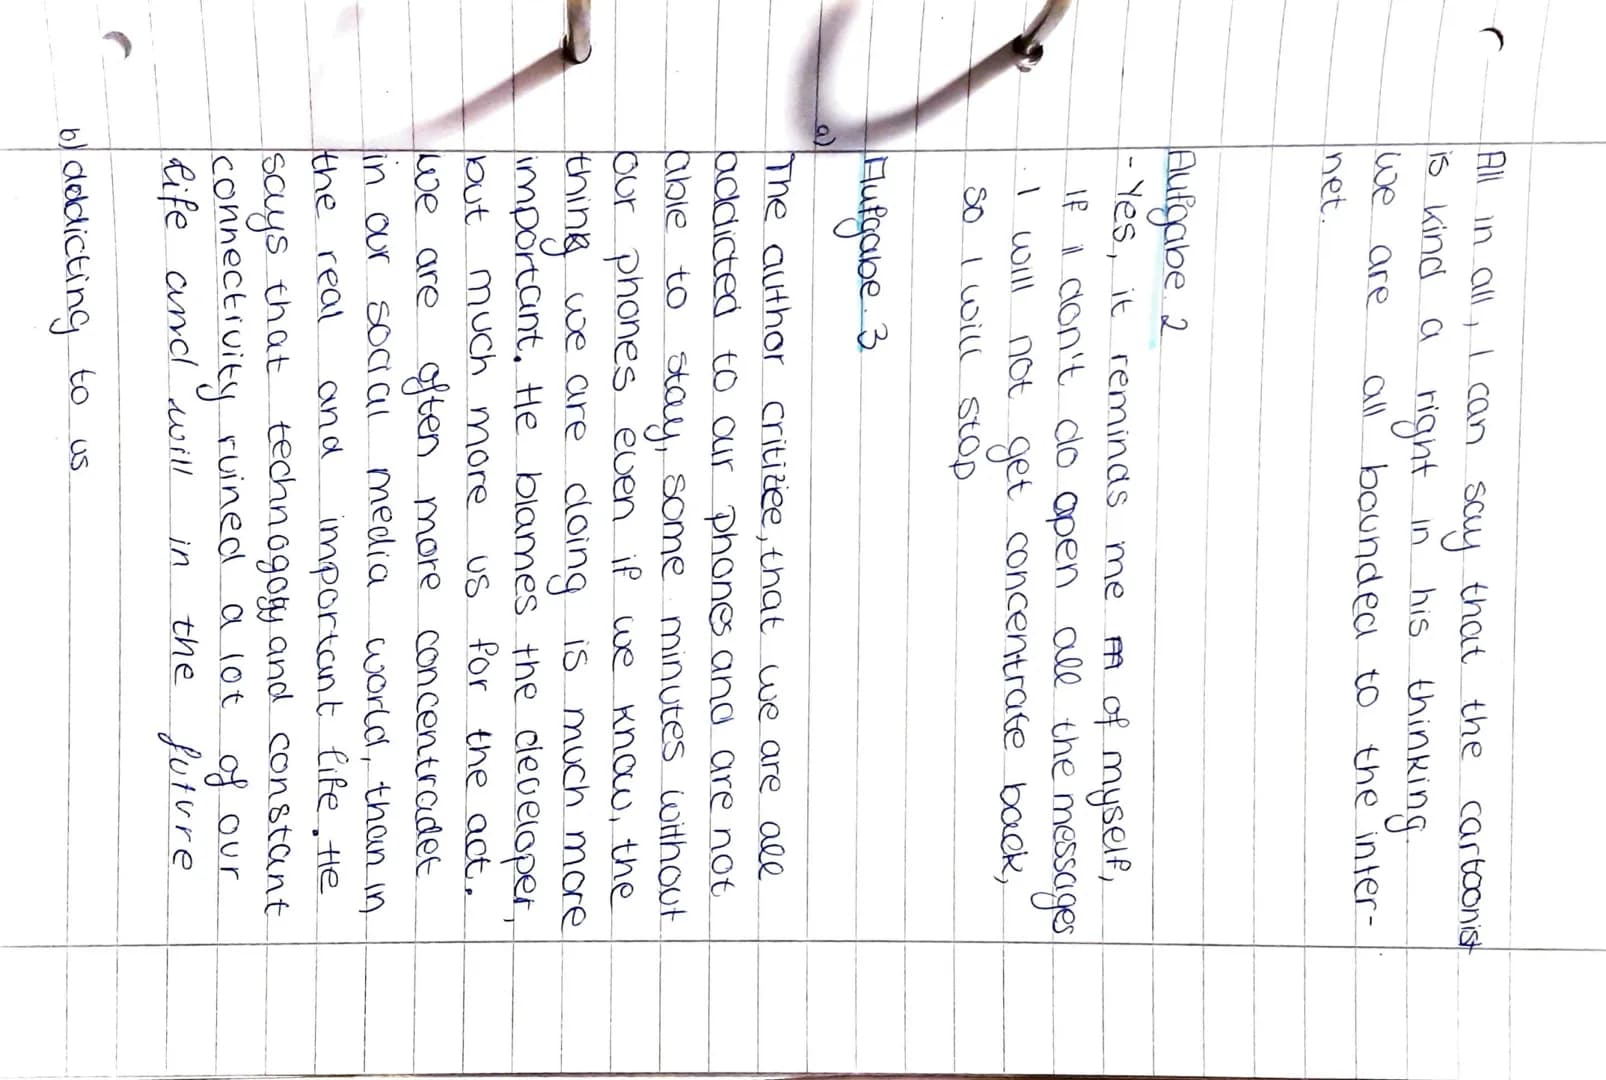 All in all, I can say that the cartoonist
is kind a right in his thinking.
We are all bounded to the inter-
net.
Aufgabe. 2
- Yes, it reminds me of myself,
If I don't do open all the messages
. I will not get concentrate back,
so I will stop
Aufgabe. 3
a)
The author critiziee, that we are all
addicted to our phones and are not
able to stay, some minutes without
our phones even if we know, the
think we are doing is much more
important. He blames the developer,
but much more us for the act.
We are often more concentradet
in our social media world, than in
the real and important life. He
says that technogogy and constant
connectivity ruined a lot of our
life and will in the future
b) addicting to us